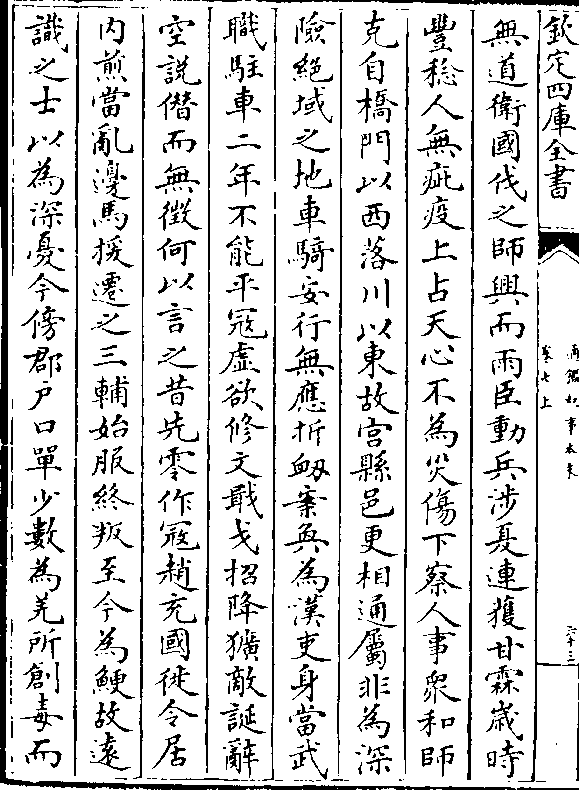 欽定四庫全書
通鑑紀事本末
卷七上
六十三
無道衛國伐之師興而雨臣動兵涉夏連獲甘霖歲時
豐稔人無疵疫上占天心不為災傷下察人事衆和師
克自橋門以西落川以東故宫縣邑更相通屬非為深
險絶域之地車騎安行無應折衂案奐為漢吏身當武
職駐車二年不能平冦虚欲修文戢戈招降獷敵誕辭
空説僭而無徴何以言之昔先零作冦趙充國徙令居
内煎當亂邊馬援遷之三輔始服終叛至今為鯁故逺
識之士以為深憂今傍郡户口單少數為羌所創毒而